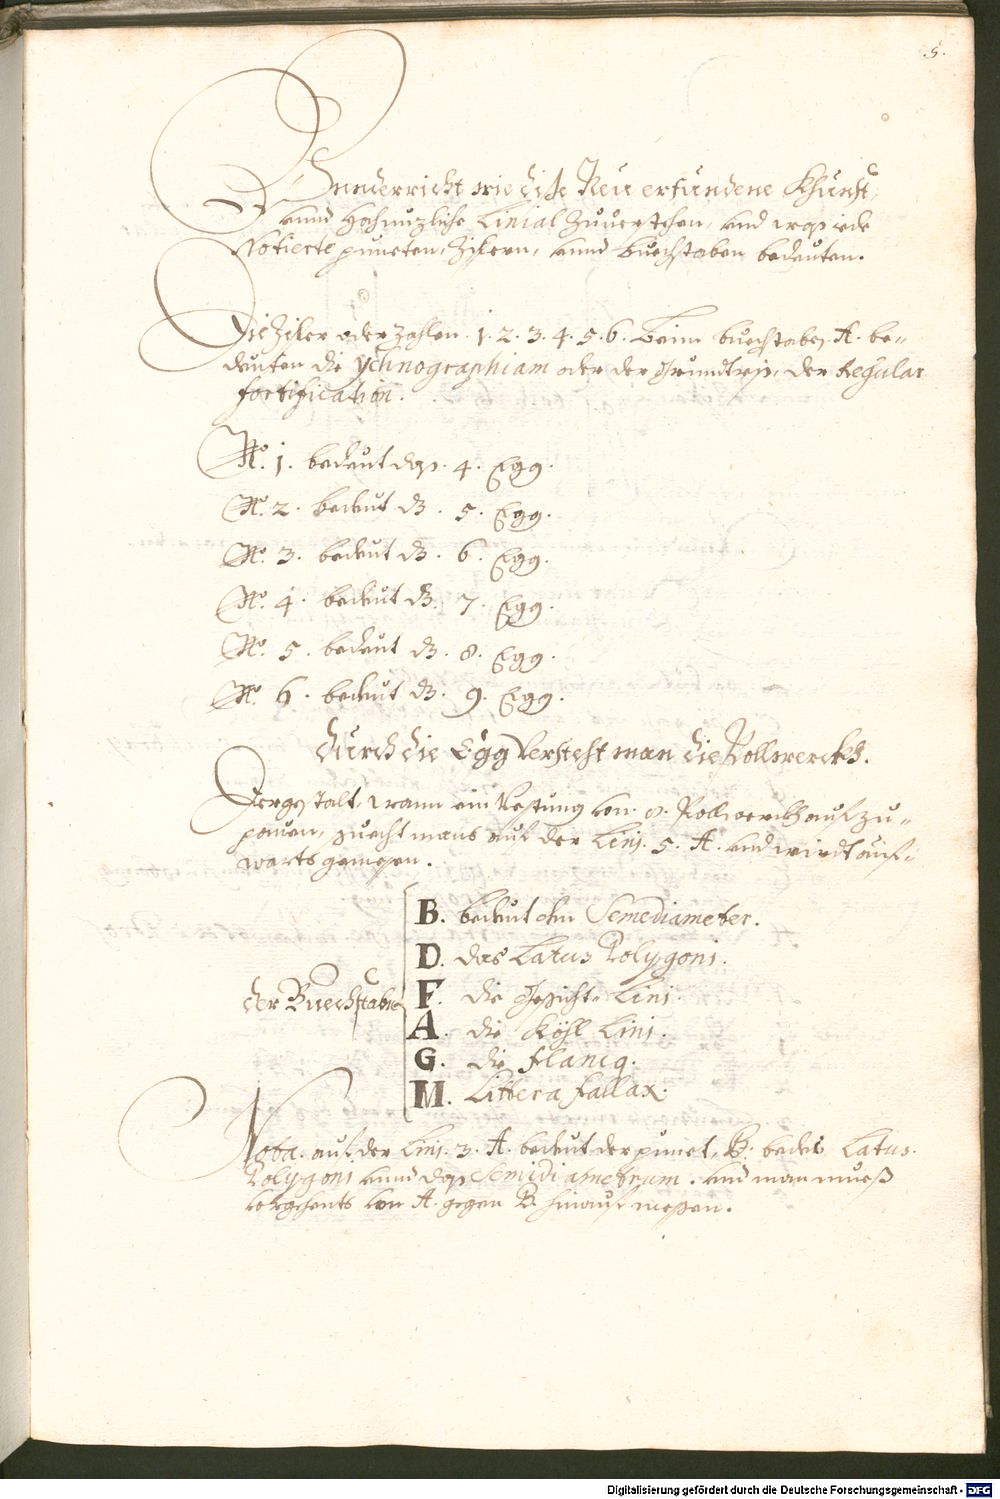 5.
Vnnderricht wie diße Neu erfundene Khunst,
vnnd Hochnuzliche Linial Zuuerstehen, vnd waß iede
Notierte puncten, Zifern, vnnd buechstaben bedeuten.
Die Zifer oder Zahlen. 1. 2. 3. 4. 5. 6. beim buechstaben. A. be-
deuten die Ychnographiam oder der Grundtriß, der Regular
fortification.
No. 1. bedeut daß. 4. Egg.
No. 2. bedeut dz. 5. Egg.
No. 3. bedeut dz. 6. Egg.
No. 4. bedeut dz. 7. Egg.
No. 5. bedeut dz. 8. Egg.
No. 6. bedeut dz. 9. Egg.
durch die Egg versteht man die Pollwerckh.
Dergestalt, wann ein Vestung von. 8. Pollwerckh auf zu-
pauen, suecht mans auf der Linj. 5. A. vnd wirdt auf-
warts gemeßen.
B. bedeut den Semediameter.
D. das Latus Polygoni.
der Buechstabe
F. die Gesicht-Lini.
A. die Köhl Lini.
G. die flancq.
M. Littera fallax.
Nota. auf der Linj. 3. A. bedeut der punct, B. bedes Latus.
Polygoni vnnd daß Semidiametrum. vnd man mueß
volgehents von A. gegen B. hinauf meßen.
Digitalisierung gefördert durch die Deutsche Forschungsgemeinschaft - DFG